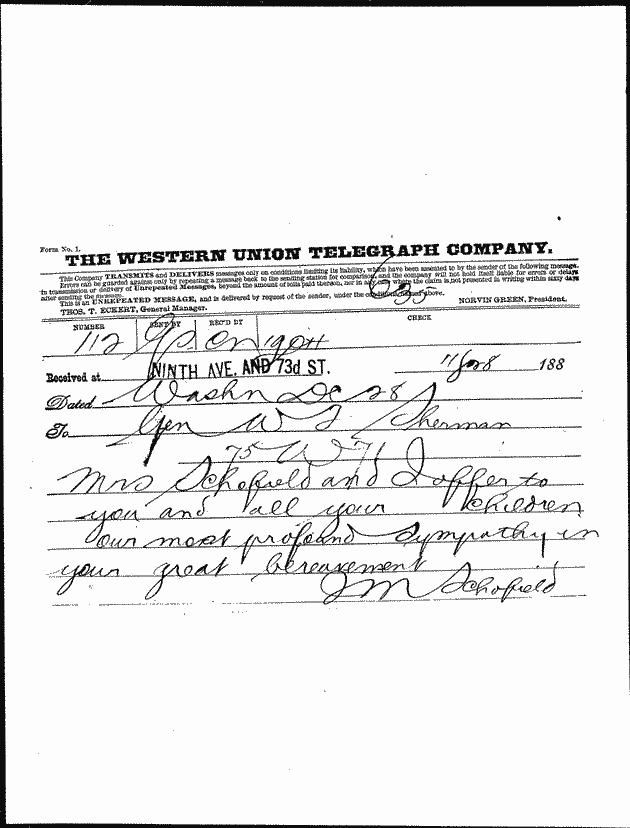 Form No. 1.
THE WESTERN UNION TELEGRAPH COMPANY.
This Company TRANSMITS and DELIVERS messages only on conditions limiting its liability, which have been assented to by the sender of the following message.
Errors can be guarded against only by repeating a message back to the sending station for comparison, and the company will not hold itself liable for errors or delays
in transmission or delivery of Unrepeated Messages, beyond the amount of tolls paid thereon, nor in any case where the claim is not presented in writing within sixty days
after sending the message.
This is an UNREPEATED MESSAGE, and is delivered by request of the sender, under the conditions named above.
THOS. T. ECKERT, General Manager. NORVIN GREEN, President.
NUMBER SENT BY REC'D BY CHECK
112
Received at NINTH AVE. AND 73d ST. 11/28 188
Dated Washn DC 28
To Gen W T Sherman
75 W 71
Mrs Schofield and I offer to
you and all your children
our most profound sympathy in
your great bereavement
JM Schofield